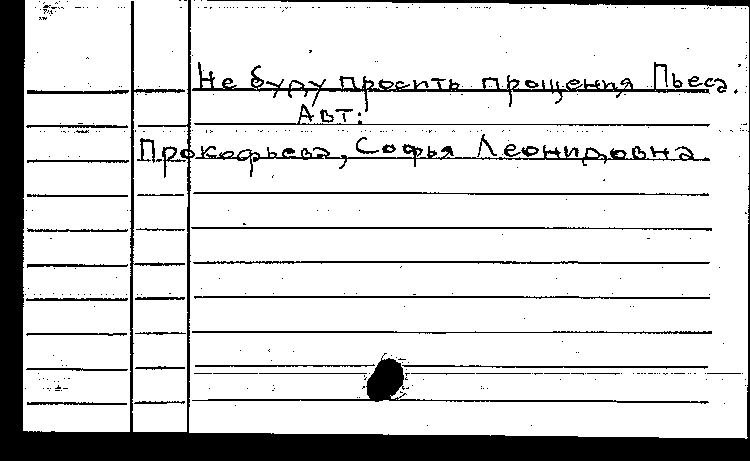 Не буду просить прощения Пьеса.
Авт:
Прокофьева, Софья Леонидовна.